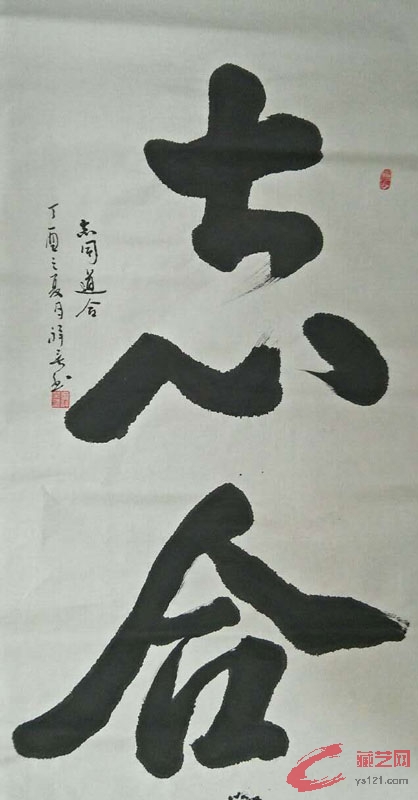 志合
志同道合
丁酉之夏月祥云书
藏艺网
ys121.com